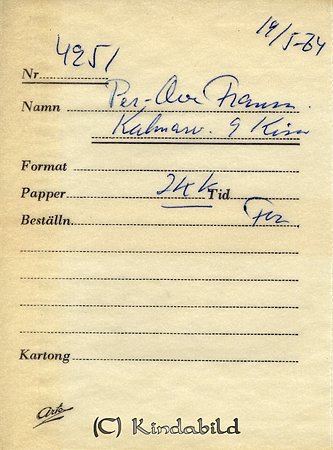 19/5-64
Nr 4251
Namn Per-Ove Fransson
Kalmarv. 9 Kisa
Format
Papper 24k Tid
Beställn.
Kartong
Ark
(C) Kindabild